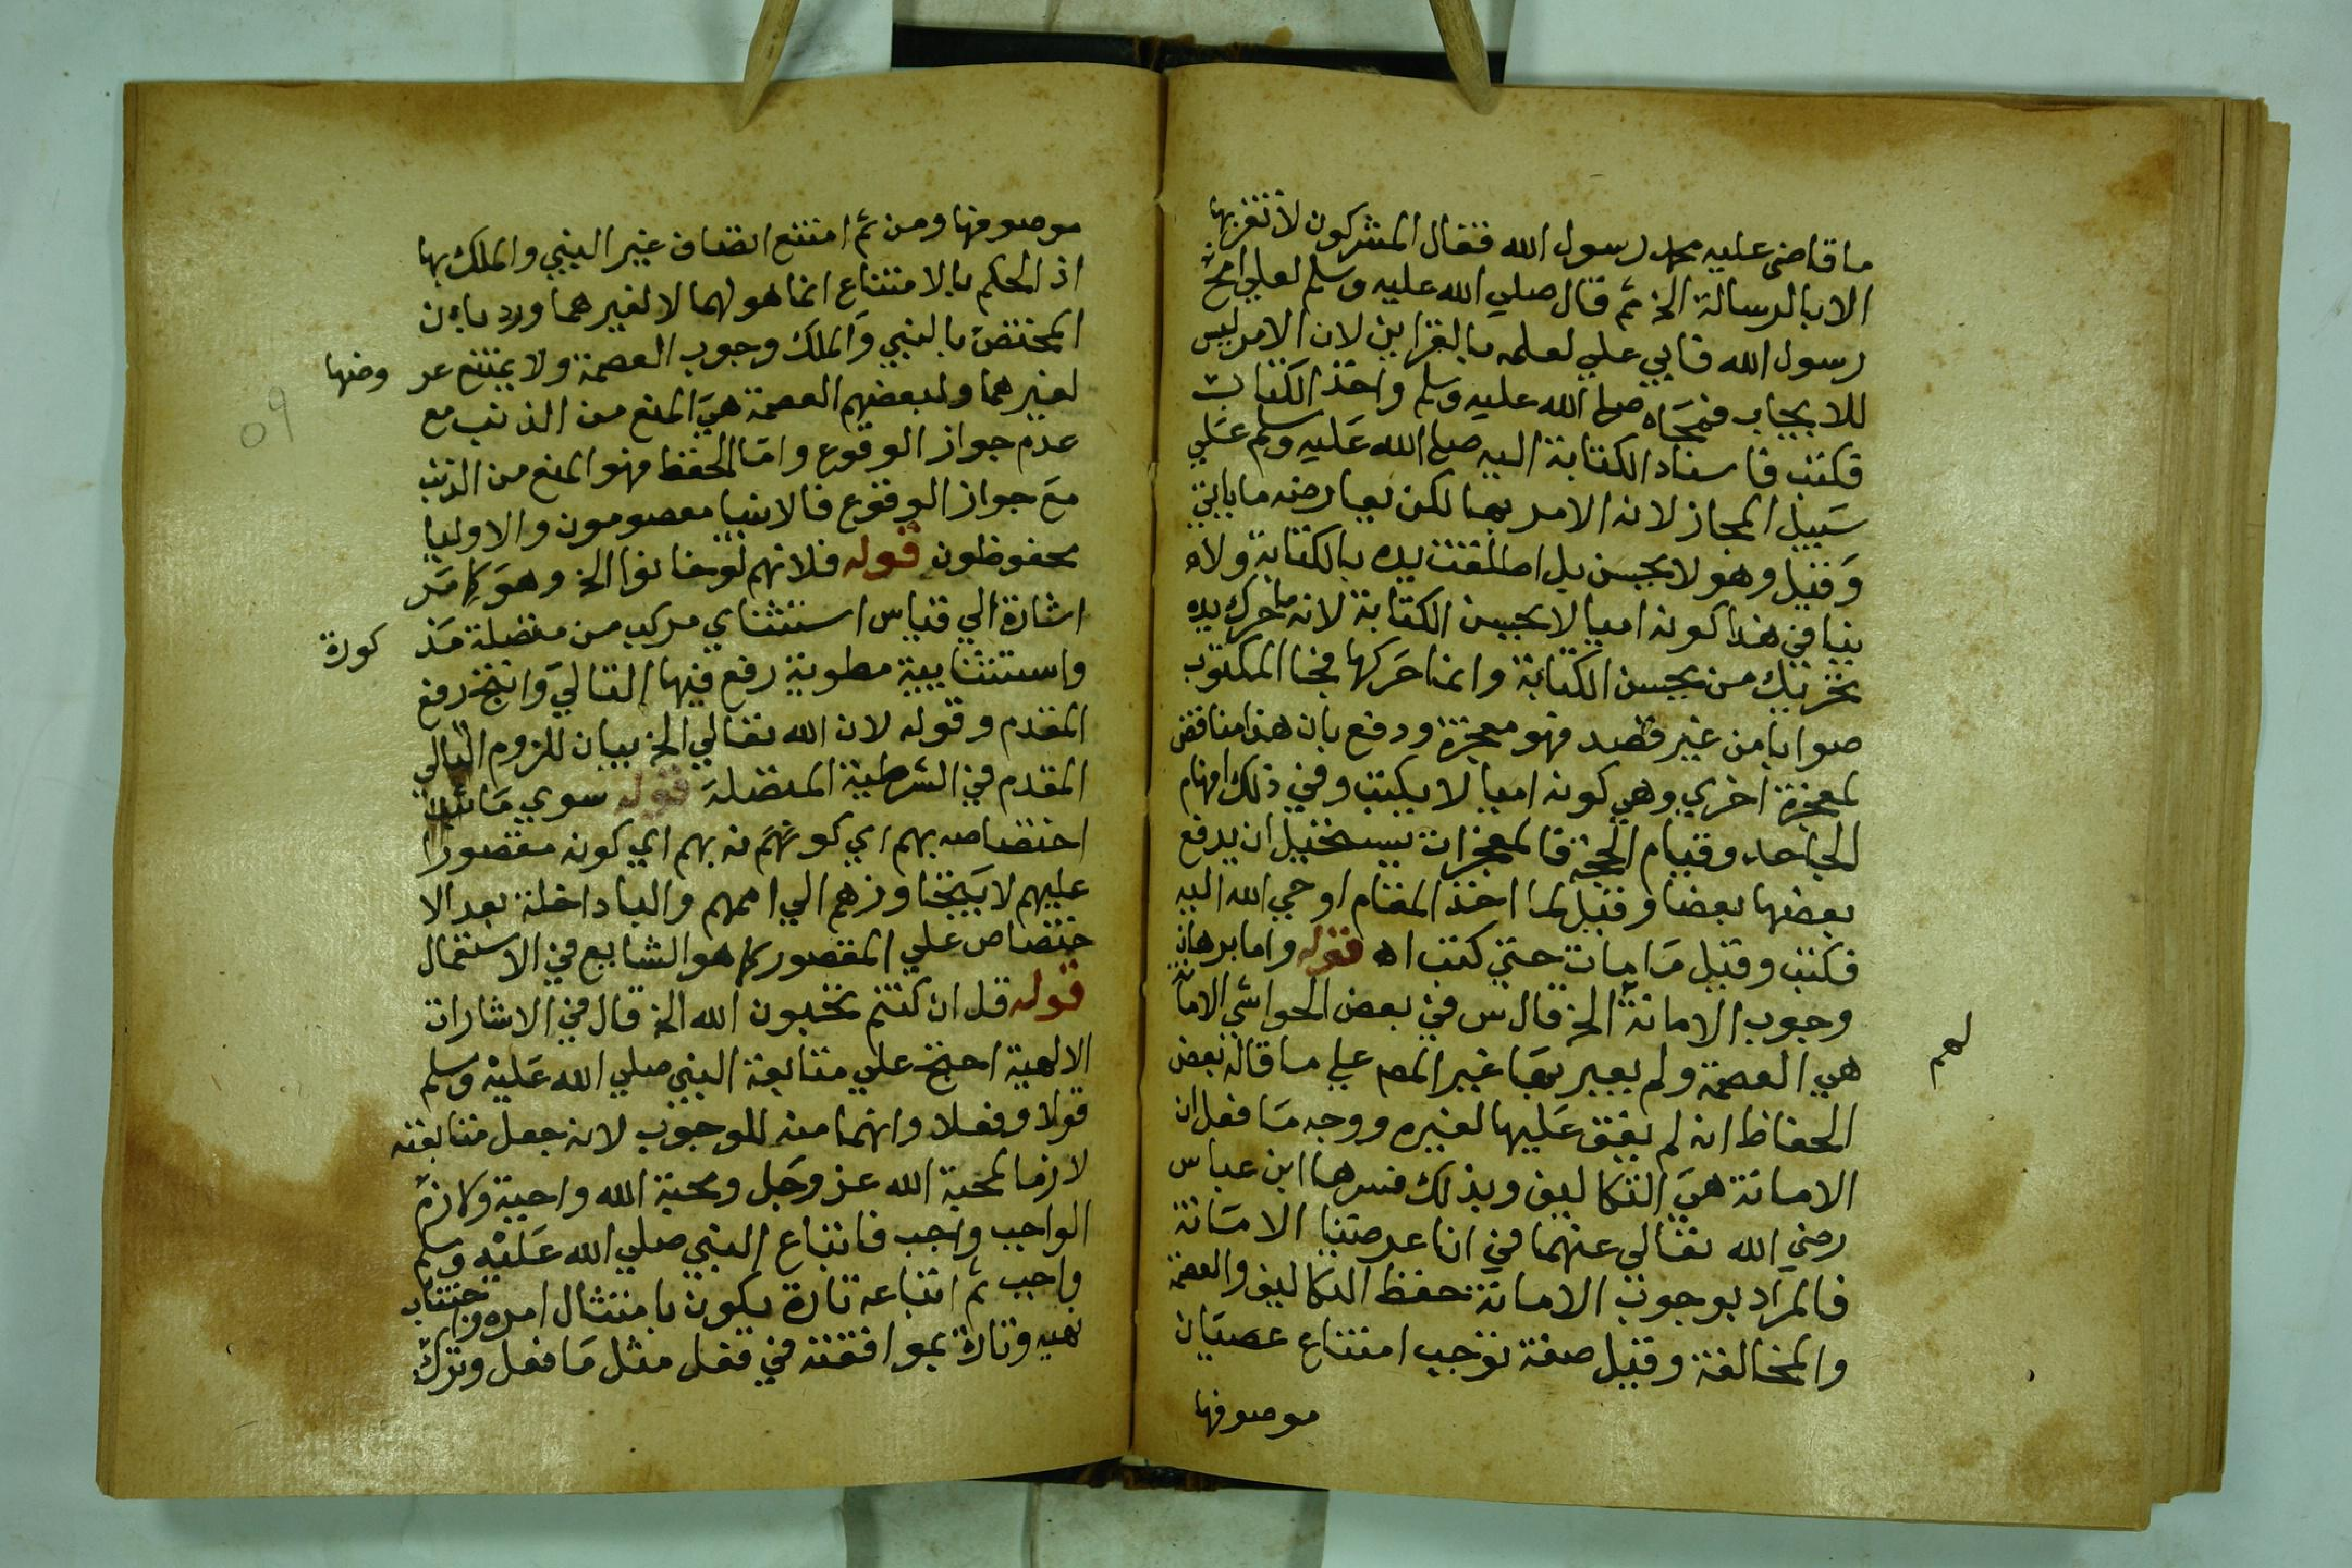 ما قاضى عليه محمد رسول الله فقال المشركون لا نقر بها
الا بالرسالة الخ ثم قال صلي الله عليه وسلم لعلي امح
رسول الله فابي علي لعلمه بالقراين لان الامر ليس
للايجاب فمحاه صلى الله عليه وسلم واخذ الكتاب
فكتب فاسناد الكتابة اليه صلى الله عليه وسلم علي
سبيل المجاز لانه الامر بها لكن يعارضه ما ياتي
وقيل وهو لا يحسن بل اطلقت يده بالكتابة ولا
ينافي هذا كونه اميا لا يحسن الكتابة لانه ما حرك يده
تحريك من يحسن الكتابة وانما حركها فجا المكتوب
صوابا من غير قصد فهو معجزة ودفع بان هذا مناقض
لمعجزة اخري وهي كونه اميا لا يكتب وفي ذلك افهام
الجاحد وقيام الحجة فالمعجزات يستحيل ان يدفع
بعضها بعضا وقيل لما اخذ القلم اوحي الله اليه
فكتب وقيل ما مات حتي كتب اه قوله واما برهان
وجوب الامانة الخ قال س في بعض الحواشي الامانة
هي العصمة ولم يعبر بها غير المص علي ما قاله بعض
الحفاظ انه لم يقف عليها لغيره ووجه ما فعل ان
لهم
الامانة هي التكاليف وبذلك فسرها ابن عباس
رضي الله تعالى عنهما في انا عرضنا الامانة
فالمراد بوجوب الامانة حفظ التكاليف والعصمة
والمخالفة وقيل صفة توجب امتناع عصيان
موصوفها
موصوفها ومن ثم امتنع اتصاف غير النبي والملك بها
اذ الحكم بالامتناع انما هو لهما لا لغيرهما ورد بان
المختص بالنبي والملك وجوب العصمة ولا يمتنع عر
وضها
لغيرهما ولبعضهم العصمة هي المنع من الذنب مع
عدم جواز الوقوع واما الحفظ فهو المنع من الذنب
مع جواز الوقوع فالانبيا معصومون والاوليا
محفوظون قوله فلانهم لو خانوا الخ وهو كما مر
اشارة الي قياس استثناي مركب من متصلة مذ
كورة
واستثنايية مطوية رفع فيها التالي وانتج رفع
المقدم وقوله لان الله تعالي الخ بيان للزوم التالي
المقدم في الشرطية المتصلة قوله سوي ما ثبت
اختصاصه بهم اي كونهم نه بهم اي كونه مقصورا
عليهم لا يتجاوزهم الي اممهم والباداخلة بعد الا
ختصاص علي المقصور كما هو الشايع في الاستعمال
قوله قل ان كنتم تحبون الله الخ قال في الاشارات
الالهية احتج علي متابعة النبي صلي الله عليه وسلم
قولا وفعلا وانهما منه للوجوب لانه جعل متابعته
لازما لمحبة الله عز وجل ومحبة الله واجبة ولازم
الواجب واجب فاتباع النبي صلي الله عليه وسلم
واجب ثم اتباعه تارة يكون بامتثال امره واجتناب
نهيه وتارة بموافقته في فعل مثل ما فعل وترك
٥٩